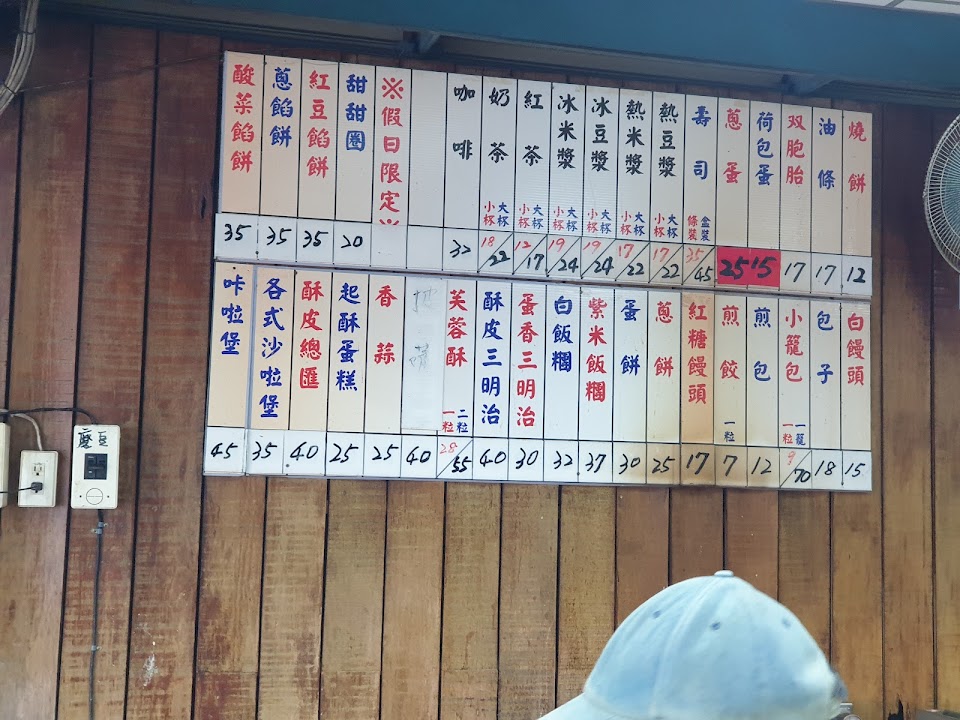 燒餅 12
油條 17
双胞胎 17
荷包蛋 15
蔥蛋 25
壽司 條裝 盒裝 35/45
熱豆漿 小杯 大杯 17/22
熱米漿 小杯 大杯 17/22
冰豆漿 小杯 大杯 19/24
冰米漿 小杯 大杯 19/24
紅茶 小杯 大杯 12/17
奶茶 小杯 大杯 18/22
咖啡 32
※假日限定※
甜甜圈 20
紅豆餡餅 35
蔥餡餅 35
酸菜餡餅 35
白饅頭 15
包子 18
小籠包 一粒 一籠 9/70
煎包 12
煎餃 一粒 7
紅糖饅頭 17
蔥餅 25
蛋餅 30
紫米飯糰 37
白飯糰 32
蛋香三明治 30
酥皮三明治 40
芙蓉酥 一粒 二粒 28/55
40
香蒜 25
起酥蛋糕 25
酥皮總匯 40
各式沙啦堡 35
咔啦堡 45
磨豆